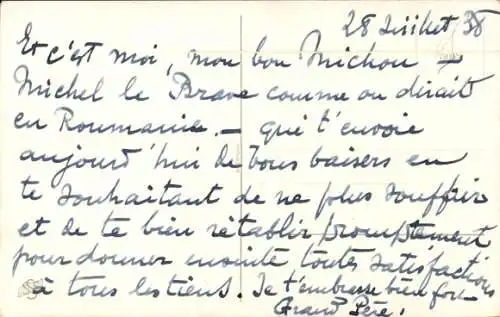 28 Juillet 38
Et c'est moi, mon bon Michou —
Michel le Brave comme on dirait
en Roumanie. — qui t'envoie
aujourd'hui de bons baisers en
te souhaitant de ne plus souffrir
et de te bien rétablir promptement
pour donner ensuite toutes satisfactions
à tous les tiens. Je t'embrasse bien fort
Grand Père.